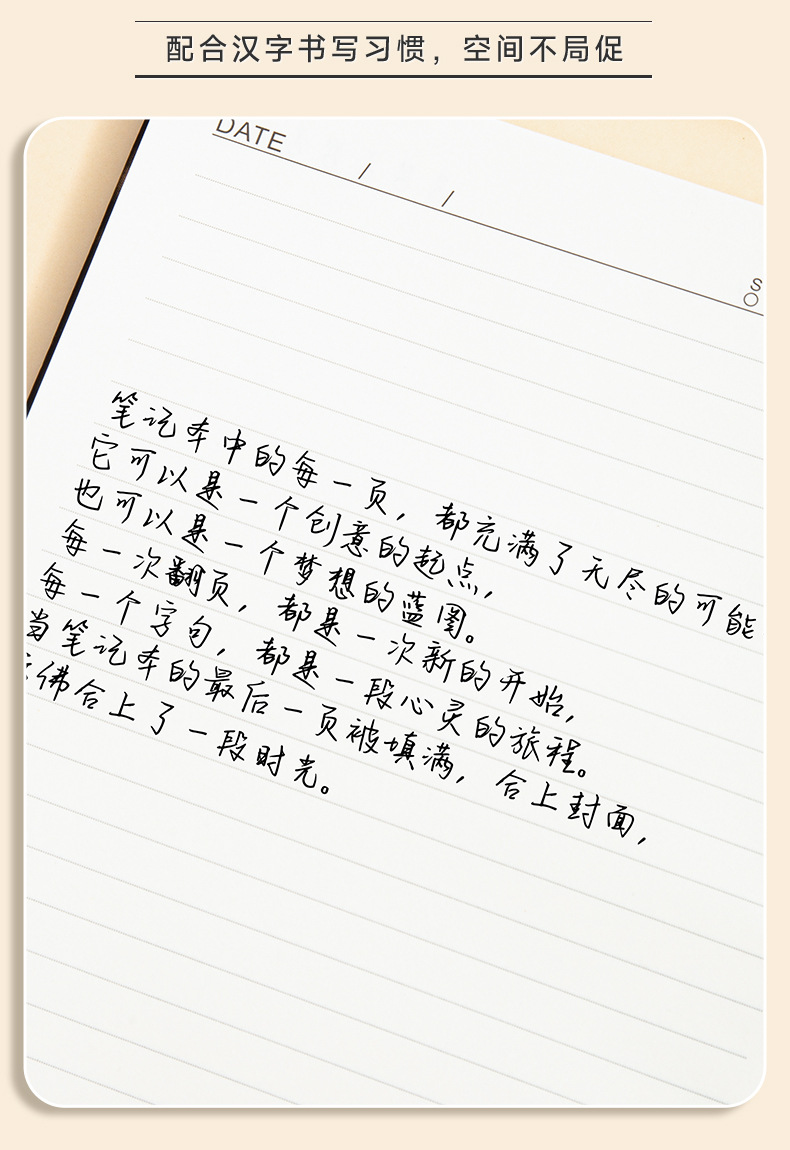 配合汉字书写习惯，空间不局促
DATE / /
S
笔记本中的每一页，都充满了无尽的可能
它可以是一个创意的起点，
也可以是一个梦想的蓝图。
每一次翻页，都是一次新的开始，
每一个字句，都是一段心灵的旅程。
当笔记本的最后一页被填满，合上封面，
佛合上了一段时光。